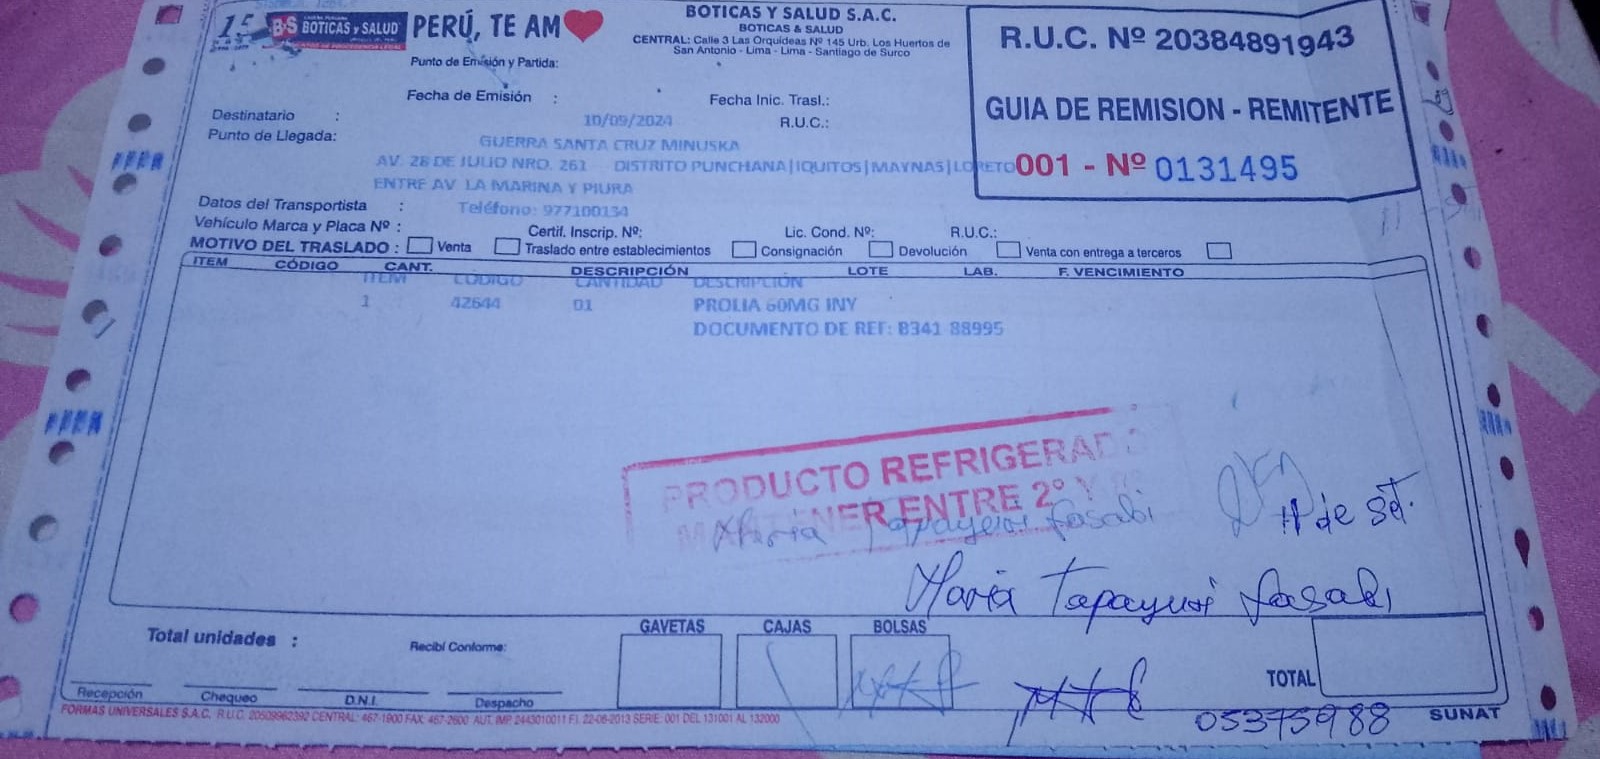 15
B·S BOTICAS Y SALUD PERÚ, TE AM
BOTICAS Y SALUD S.A.C.
BOTICAS & SALUD
CENTRAL: Calle 3 Las Orquídeas Nº 145 Urb. Los Huertos de
San Antonio - Lima - Lima - Santiago de Surco
R.U.C. Nº 20384891943
GUIA DE REMISION - REMITENTE
001 - Nº 0131495
Punto de Emisión y Partida:
Fecha de Emisión : Fecha Inic. Trasl.:
Destinatario : 10/09/2024 R.U.C.:
Punto de Llegada: GUERRA SANTA CRUZ MINUSKA
AV. 28 DE JULIO NRO. 261 DISTRITO PUNCHANA|IQUITOS|MAYNAS|LORETO
ENTRE AV LA MARINA Y PIURA
Datos del Transportista : Teléfono: 977100134
Vehículo Marca y Placa Nº : Certif. Inscrip. Nº: Lic. Cond. Nº: R.U.C.:
MOTIVO DEL TRASLADO : Venta Traslado entre establecimientos Consignación Devolución Venta con entrega a terceros
ITEM CÓDIGO CANT. DESCRIPCIÓN LOTE LAB. F. VENCIMIENTO
ITEM CODIGO CANTIDAD DESCRIPCION
1 42644 01 PROLIA 60MG INY
DOCUMENTO DE REF: B341 88995
PRODUCTO REFRIGERADO
MANTENER ENTRE 2° Y
Maria Tapayuri Sasabi
11 de set.
Maria Tapayuri Sasabi
Total unidades : Recibí Conforme: GAVETAS CAJAS BOLSAS
TOTAL
Recepción Chequeo D.N.I. Despacho
05375988 SUNAT
FORMAS UNIVERSALES S.A.C. R.U.C. 20509962390 CENTRAL: 467-1900 FAX: 467-2600 AUT. IMP. 2443010011 F.I. 22-06-2013 SERIE: 001 DEL 131001 AL 132000